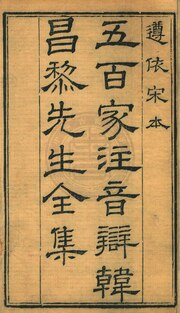 遵依宋本
五百家注音辯韓
昌黎先生全集